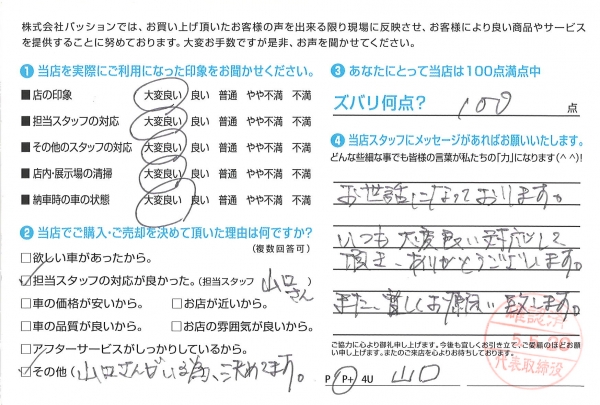 株式会社パッションでは、お買い上げ頂いたお客様の声を出来る限り現場に反映させ、お客様により良い商品やサービス
を提供することに努めております。大変お手数ですが是非、お声を聞かせてください。
1 当店を実際にご利用になった印象をお聞かせください。
■店の印象 大変良い 良い 普通 やや不満 不満
■担当スタッフの対応 大変良い 良い 普通 やや不満 不満
■その他のスタッフの対応 大変良い 良い 普通 やや不満 不満
■店内・展示場の清掃 大変良い 良い 普通 やや不満 不満
■納車時の車の状態 大変良い 良い 普通 やや不満 不満
2 当店でご購入・ご売却を決めて頂いた理由は何ですか?
(複数回答可)
□欲しい車があったから。
□担当スタッフの対応が良かった。(担当スタッフ 山口さん
□車の価格が安いから。 □お店が近いから。
□車の品質が良いから。 □お店の雰囲気が良いから。
□アフターサービスがしっかりしているから。
□その他(山口さんがいる為、決めてます。
3 あなたにとって当店は100点満点中
ズバリ何点? 100 点
4 当店スタッフにメッセージがあればお願いいたします。
どんな些細な事でも皆様の言葉が私たちの「力」になります(^^)!
お世話になっております。
いつも大変良い対応して
頂き、ありがとうございます。
また、宜しくお願い致します。
ご協力に心より御礼申し上げます。今後も宜しくお引き立て、ご愛顧のほどお願
い申し上げます。またのご来店を心よりお待ちしております。
P P+ 4U 山口
確認済
代表取締役